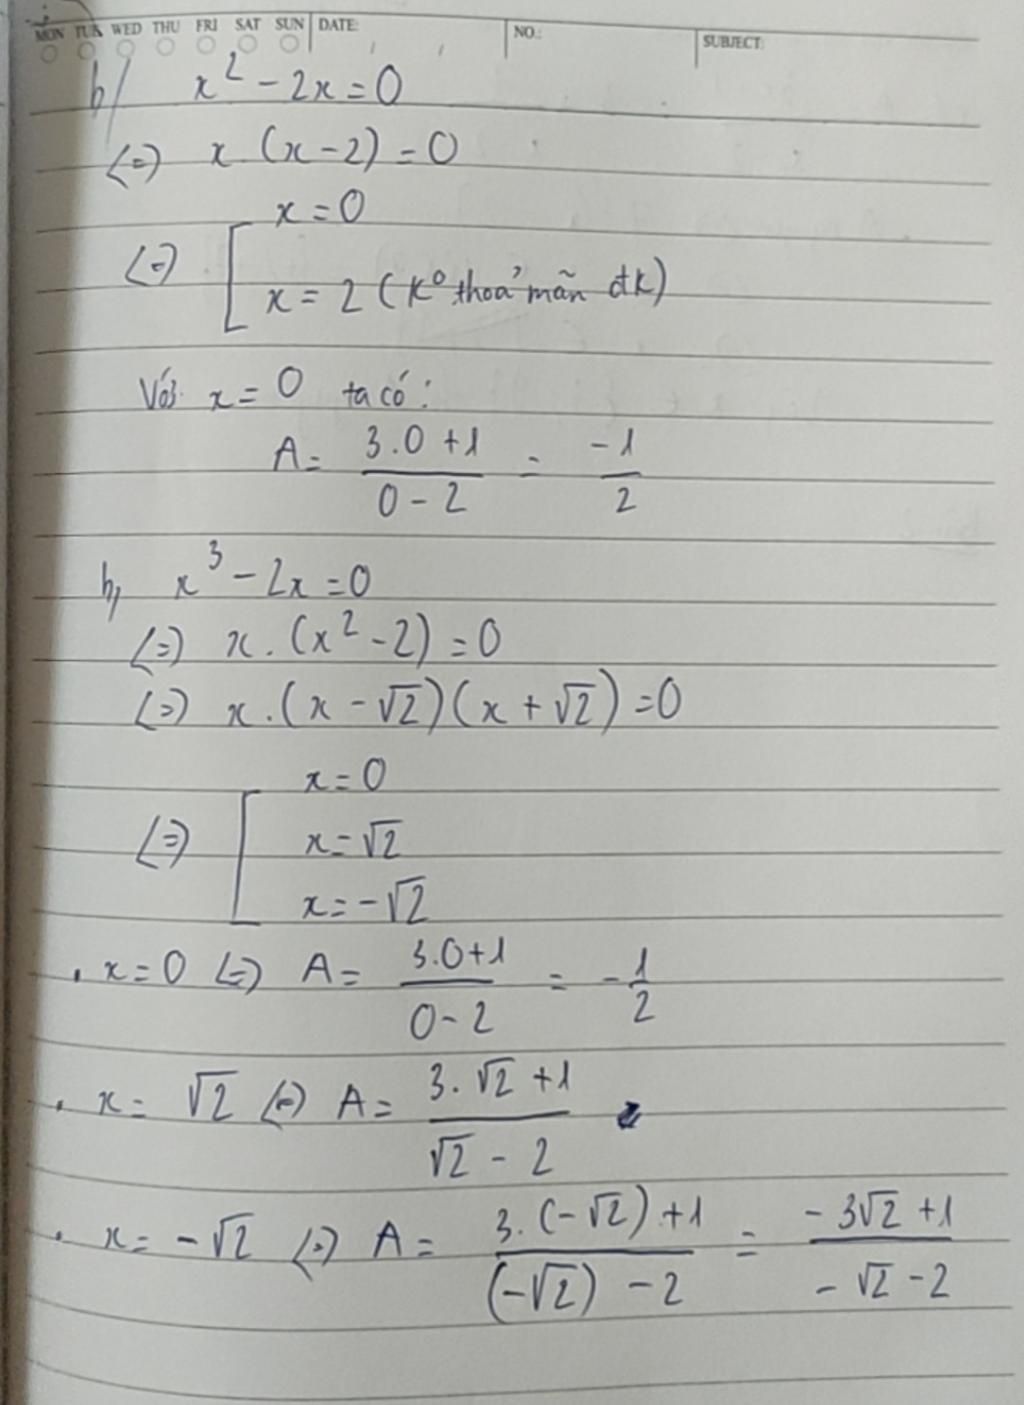 MON TUE WED THU FRI SAT SUN DATE: NO.: SUBJECT:
b/ x² - 2x = 0
(=) x (x - 2) = 0
x = 0
(=) [ x = 2 (K⁰ thoả mãn đk)
Với x = 0 ta có :
A = (3.0 + 1)/(0 - 2) = -1/2
b, x³ - 2x = 0
(=) x . (x² - 2) = 0
(=) x . (x - √2)(x + √2) = 0
x = 0
(=) [ x = √2
x = -√2
. x = 0 (=) A = (3.0+1)/(0-2) = -1/2
. x = √2 (=) A = (3.√2 + 1)/(√2 - 2)
. x = -√2 (=) A = (3.(-√2) + 1)/((-√2) - 2) = (-3√2 + 1)/(-√2 - 2)